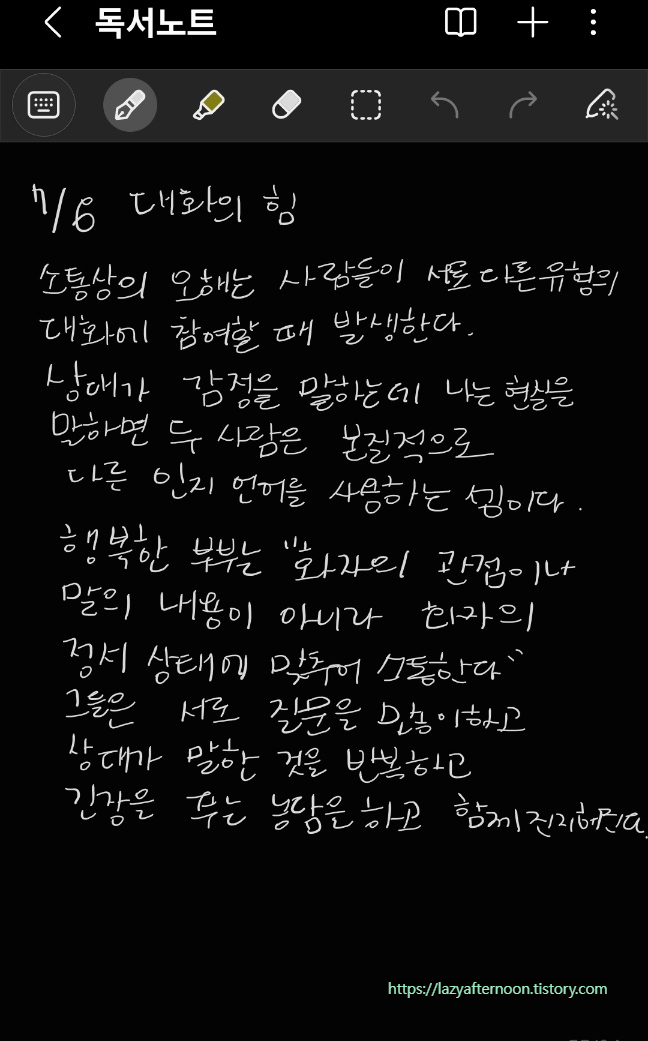 독서노트
7/6 대화의 힘
소통상의 오해는 사람들이 서로 다른 유형의
대화에 참여할 때 발생한다.
상대가 감정을 말하는데 나는 현실을
말하면 두 사람은 본질적으로
다른 인지 언어를 사용하는 셈이다.
행복한 부부는 "화자의 관점이나
말의 내용이 아니라 화자의
정서 상태에 맞추어 소통한다"
그들은 서로 질문을 많이하고
상대가 말한 것을 반복하고
긴장을 푸는 농담을 하고 함께 진지해진다.
https://lazyafternoon.tistory.com